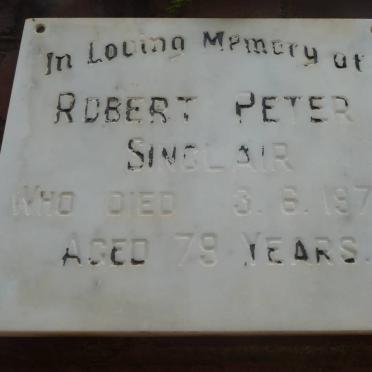 In Loving Memory of
ROBERT PETER
SINCLAIR
WHO DIED 3.6.197
AGED 79 YEARS.